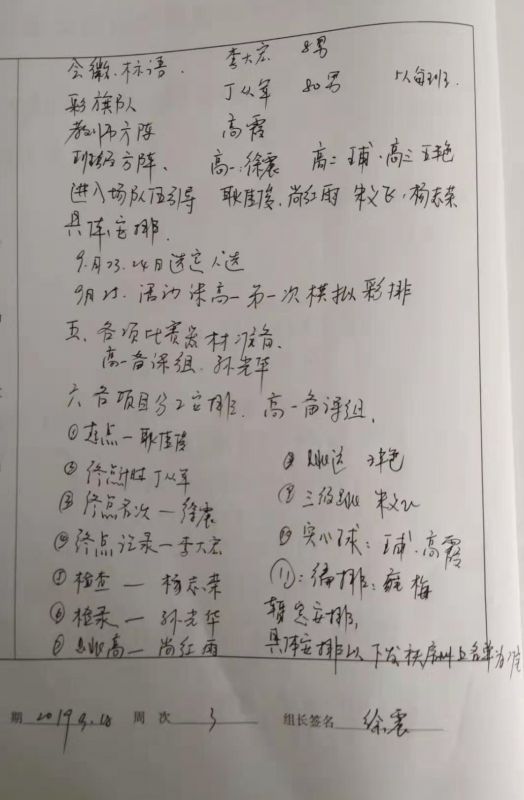 会徽、标语. 李大宏 8男
彩旗队 丁从军 80男 5人每班.
教师方阵 高霞
班级方阵、 高一:徐震 高二 王甫、高三王艳
进入场队伍引导 耿佳俊、尚红雨 宋文飞、杨志荣
具体安排.
9月23.24日选定人选
9月25. 活动课高一第一次模拟彩排
五、各项比赛器材准备.
高一备课组、孙光华
六、各项目分工安排. 高一备课组,
①起点—耿佳俊
②终点计时 丁从军
③终点名次—徐震
④终点记录—李大宏
⑤检查—杨志荣
⑥检录—孙光华
⑦跳高—尚红雨
⑧跳远 王艳
⑨三级跳 宋文飞
⑩实心球: 王甫、高霞
⑪:编排: 梅
暂定安排,
具体安排以下发秩序册上名单为准
期 2019.9.18 周 次 3 组长签名 徐震